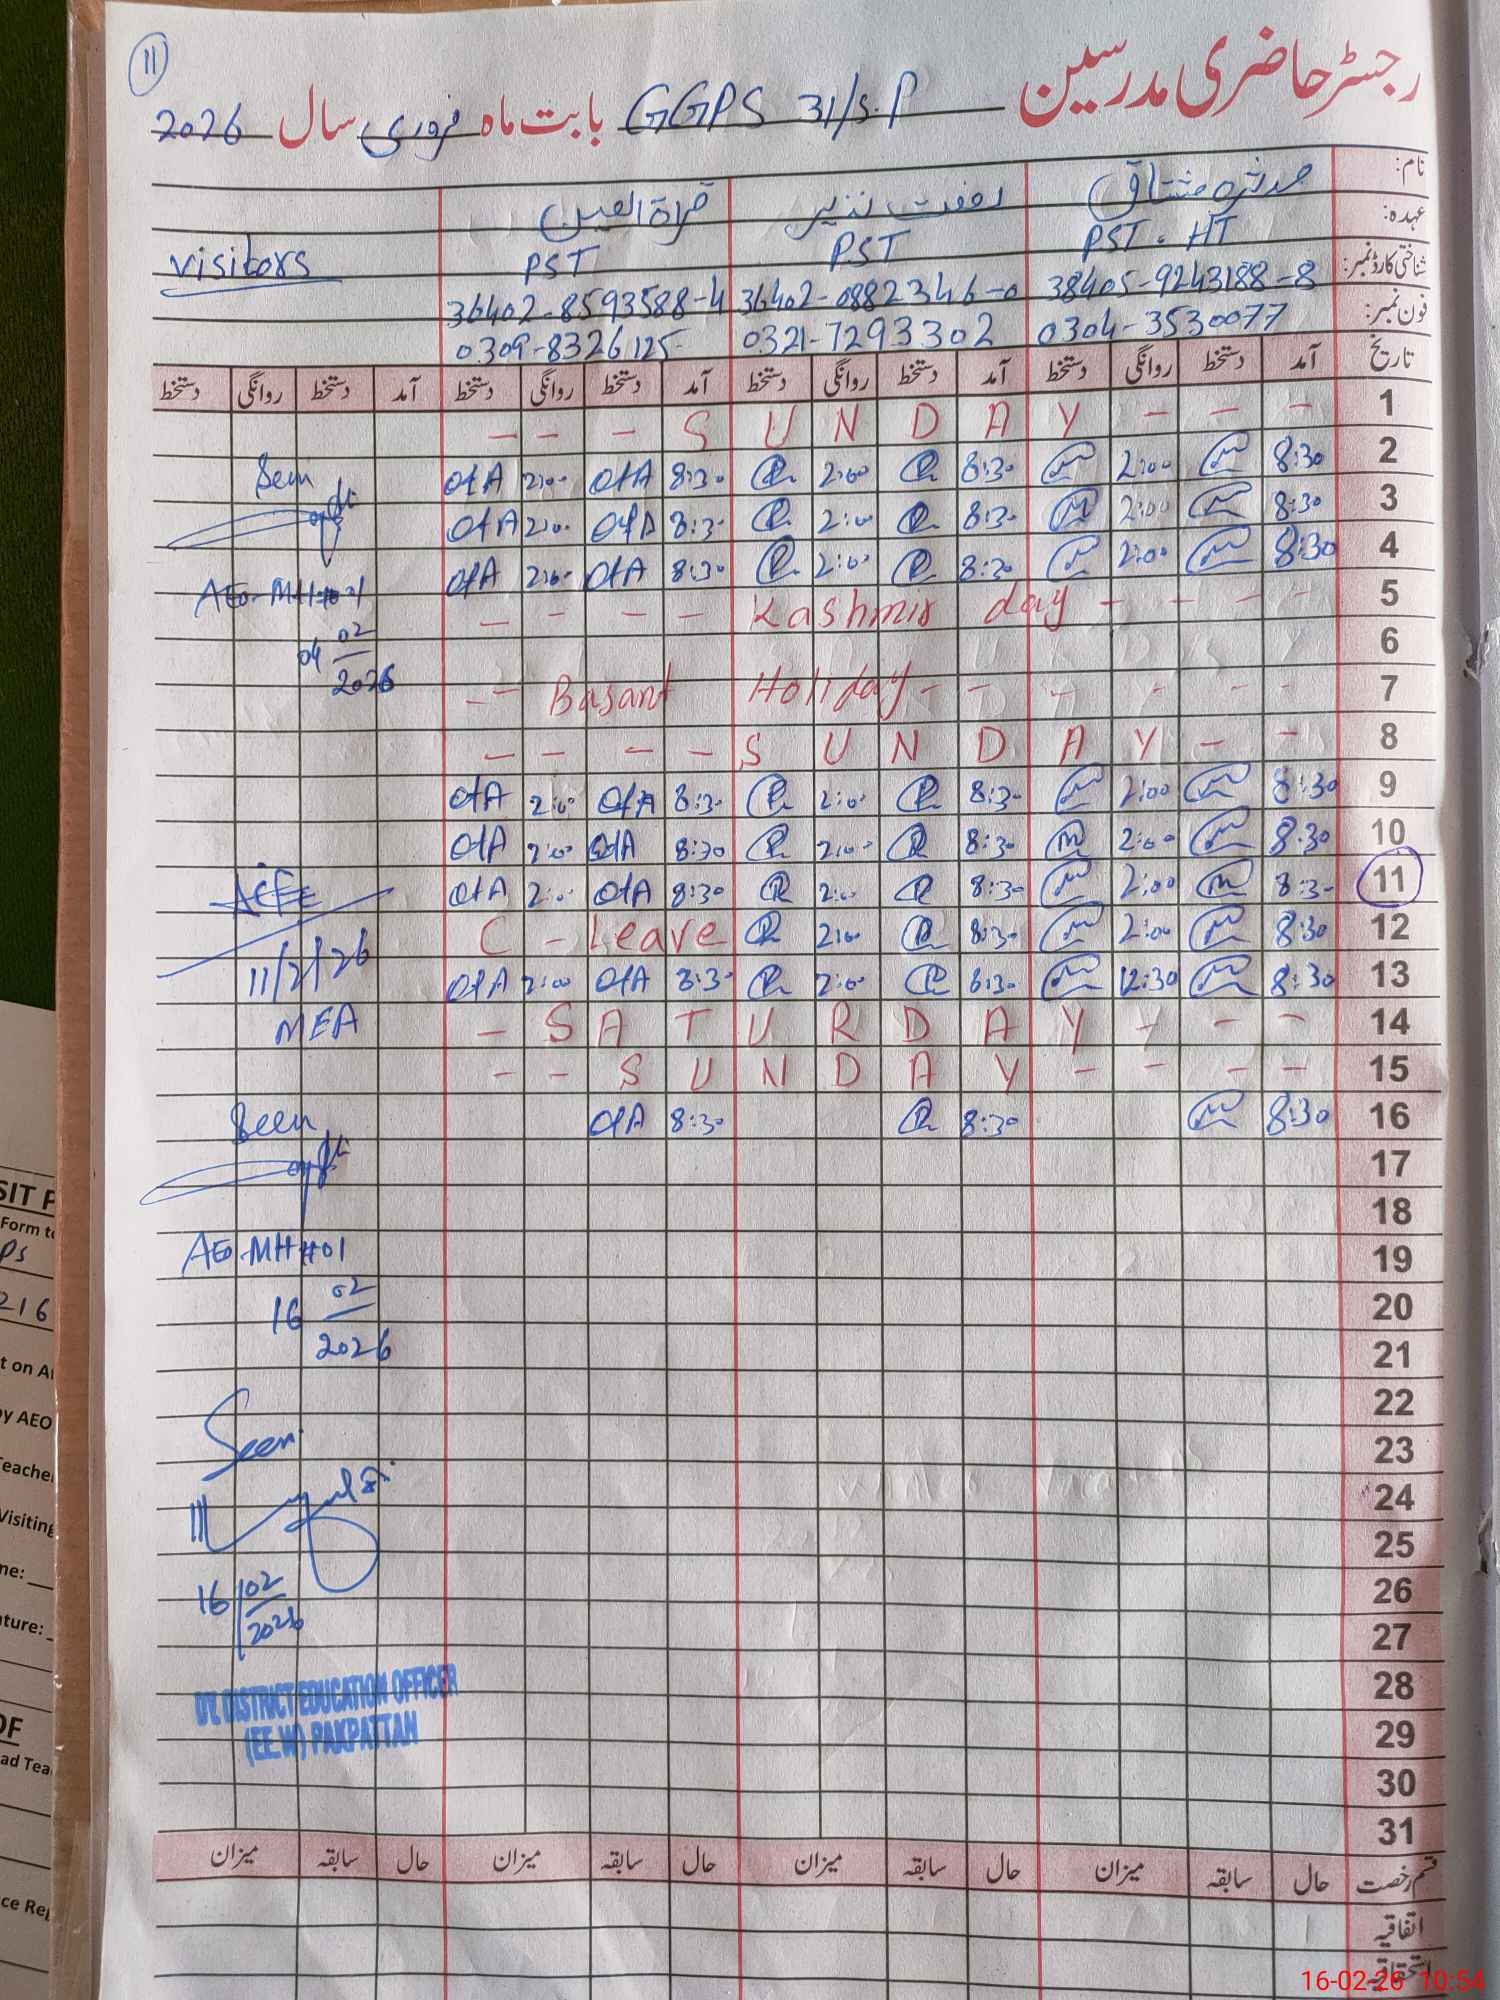 11
رجسٹر حاضری مدرسین GGPS 31/S.P بابت ماہ فروری سال 2026
نام: مدثرہ مشتاق رفعت نذیر قراۃ العین
عہدہ: PST - HT PST PST visitors
شناختی کارڈ نمبر: 38405-9243188-8 36402-0882346-0 36402-8593588-4
فون نمبر: 0304-3530077 0321-7293302 0309-8326125
تاریخ آمد دستخط روانگی دستخط آمد دستخط روانگی دستخط آمد دستخط روانگی دستخط آمد دستخط روانگی دستخط
1 - - - S U N D A Y - - -
2 8:30 2:00 8:30 2:00 8:30 2:00
3 8:30 2:00 8:30 2:00 8:30 2:00
4 8:30 2:00 8:30 2:00 8:30 2:00
5 - - - - Kashmir day - - - -
6
7 - - Basant Holiday - - - - - -
8 - - - - S U N D A Y - -
9 8:30 2:00 8:30 2:00 8:30 2:00
10 8:30 2:00 8:30 2:00 8:30 2:00
11 8:30 2:00 8:30 2:00 8:30 2:00
12 8:30 2:00 8:30 2:00 C - Leave
13 8:30 12:30 8:30 2:00 8:30 2:00
14 - S A T U R D A Y - - -
15 - - S U N D A Y - - - -
16 8:30 8:30 8:30
17
18
19
20
21
22
23
24
25
26
27
28
29
30
31
Seen
AEO-MH#01
04 02
2026
11/2/26
MEA
Seen
AEO-MH#01
16 02
2026
Seen
16 02
2026
DY. DISTRICT EDUCATION OFFICER
(EE.W) PAKPATTAN
قسم رخصت حال سابقہ میزان حال سابقہ میزان حال سابقہ میزان حال سابقہ میزان
اتفاقیہ
استحقاقیہ
SIT
Form to
216
t on
by AEO
Teache
Visiting
me:
ature:
OF
ad Tea
ce Rep
16-02-26 10:54